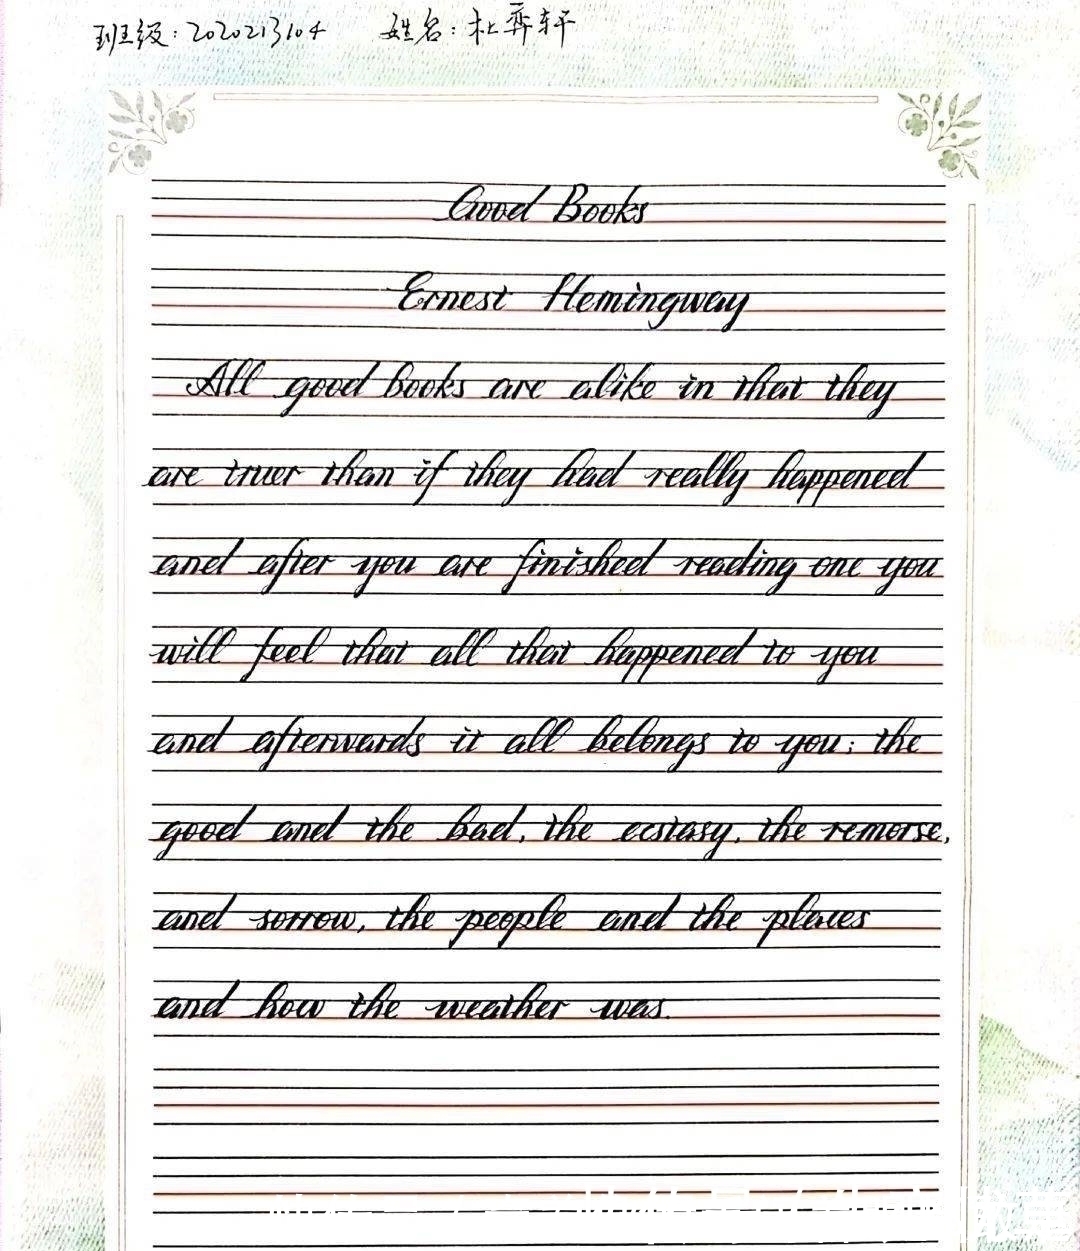 班级：2020213104 姓名：杜弈轩
Good Books
Ernest Hemingway
All good books are alike in that they
are truer than if they had really happened
and after you are finished reading one you
will feel that all that happened to you
and afterwards it all belongs to you; the
good and the bad, the ecstasy, the remorse,
and sorrow, the people and the places
and how the weather was.